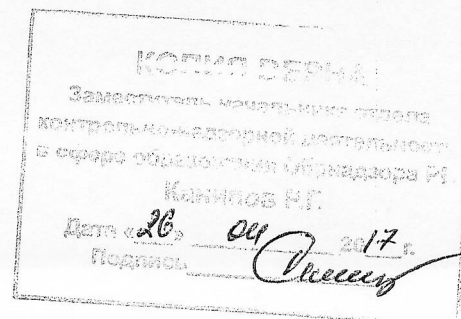 КОПИЯ ВЕРНА
Заместитель начальника отдела
контрольно-надзорной деятельност
в сфере образования Обрнадзора РБ
Дата «26» 04 2017 г.
Подпись